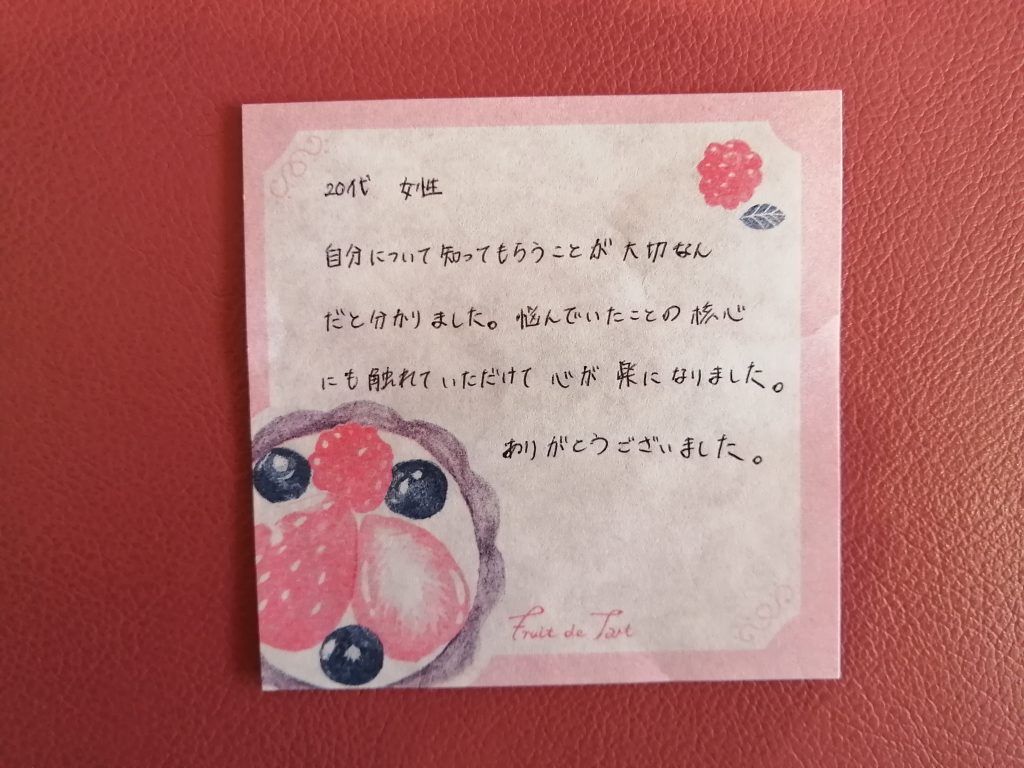 20代 女性
自分について知ってもらうことが大切なん
だと分かりました。悩んでいたことの核心
にも触れていただけて心が楽になりました。
ありがとうございました。
Fruit de Tart